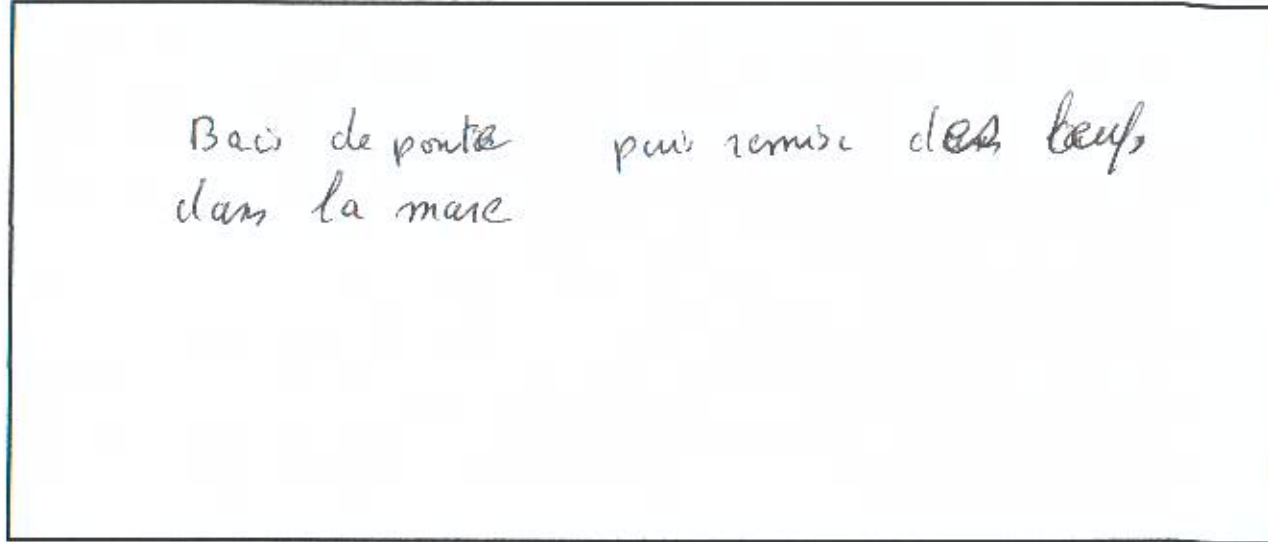 Bacs de ponte puis remise des œufs
dans la mare